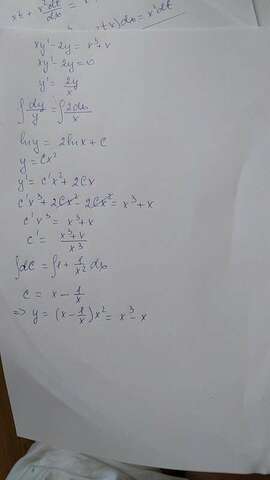 xt + x²dt/dx = x
tx)dx = x²dt
xy' - 2y = x³ + x
xy' - 2y = 0
y' = 2y/x
∫ dy/y = ∫ 2dx/x
ln y = 2lnx + C
y = Cx²
y' = C'x² + 2Cx
C'x³ + 2Cx² - 2Cx² = x³ + x
C'x³ = x³ + x
C' = (x³ + x)/x³
∫dC = ∫1 + 1/x² dx
C = x - 1/x
=> y = (x - 1/x)x² = x³ - x